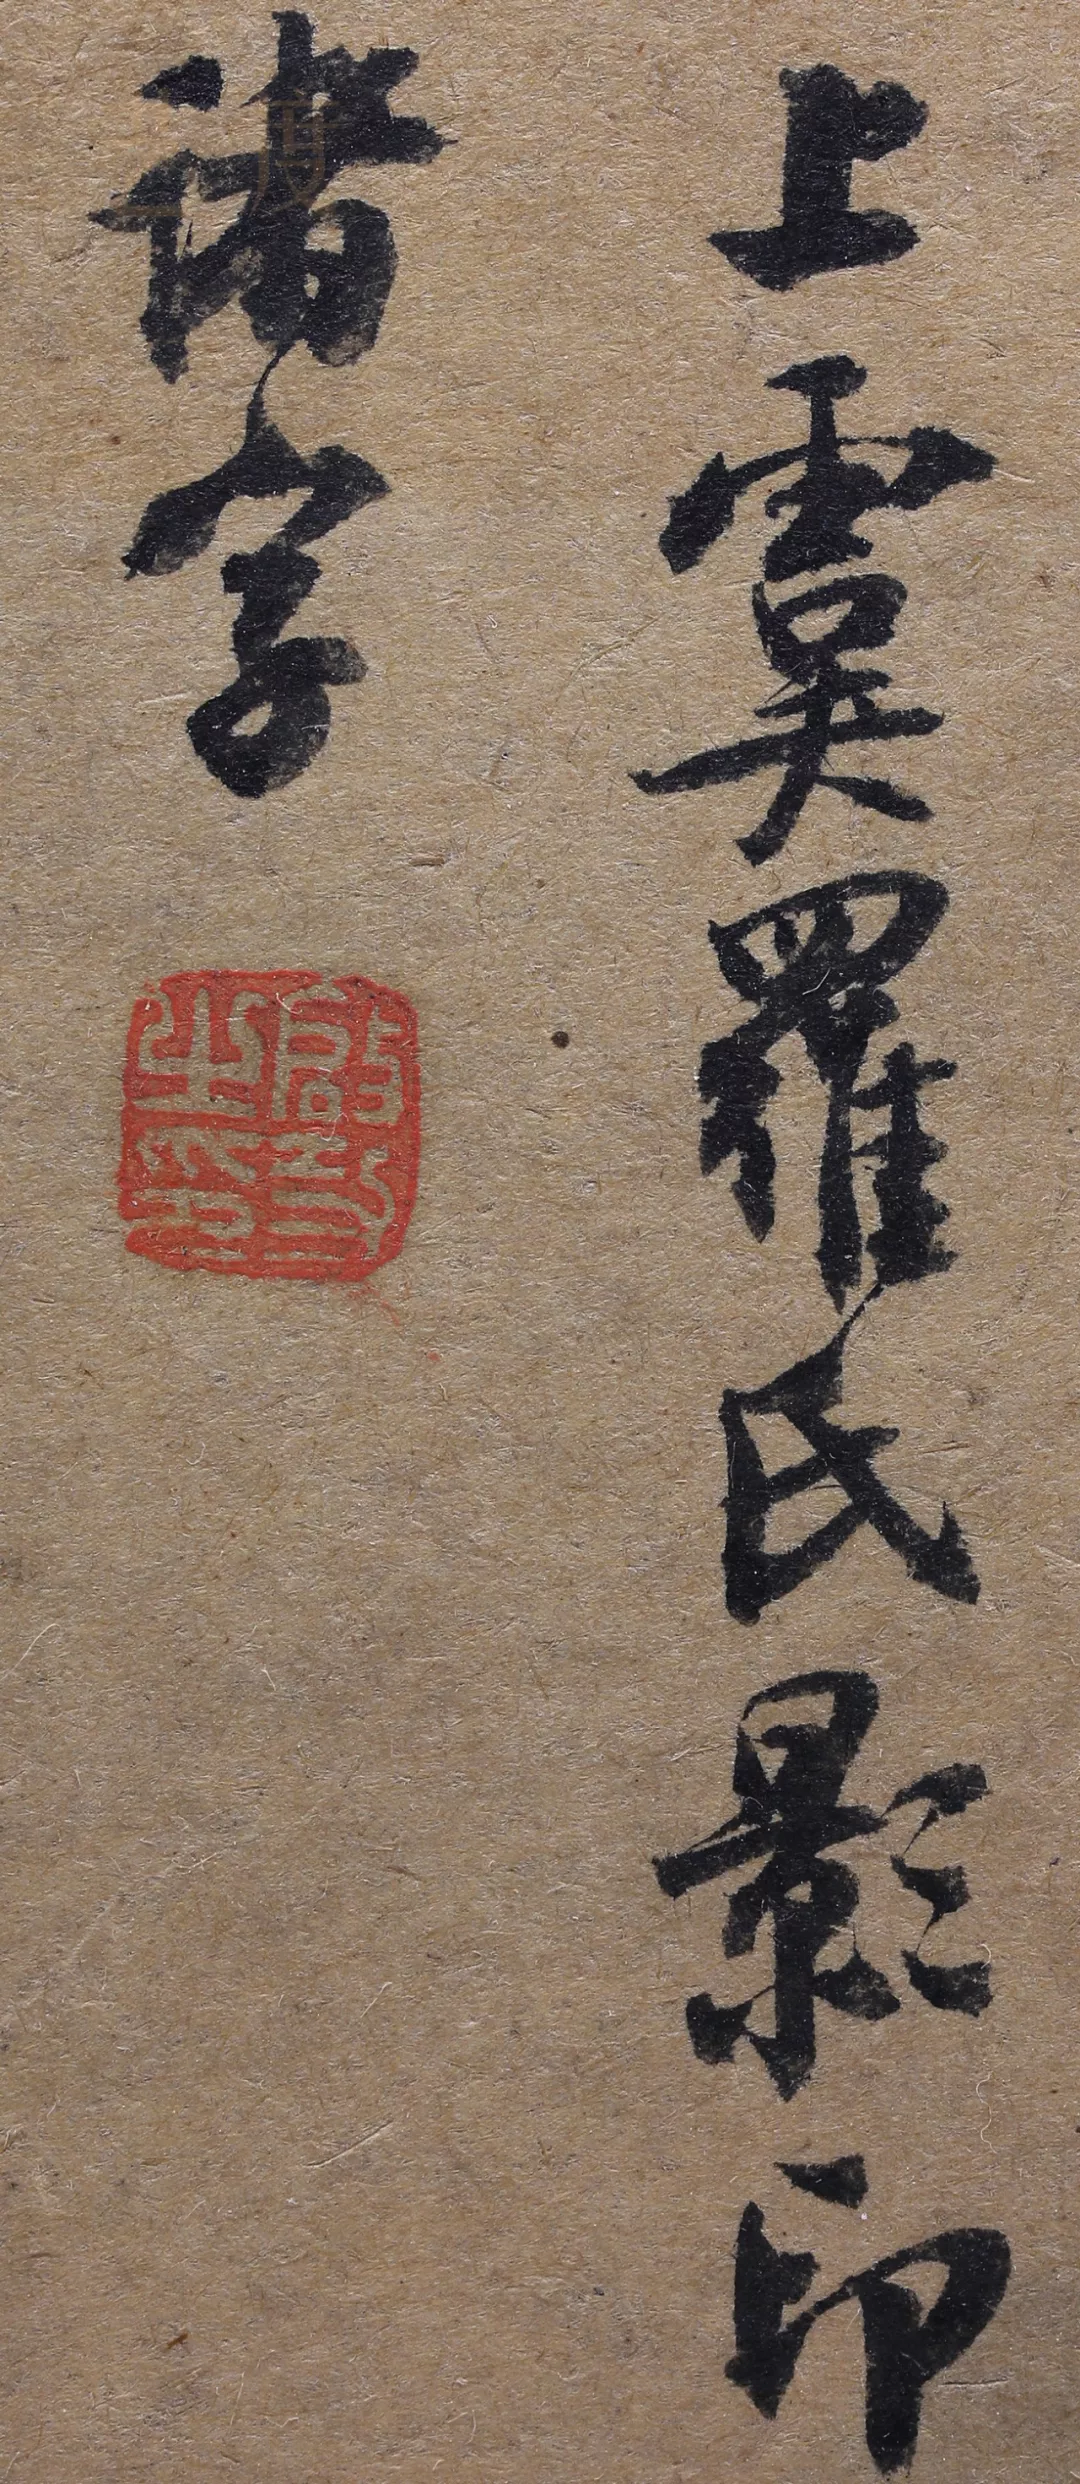 上虞羅氏影印
諸字